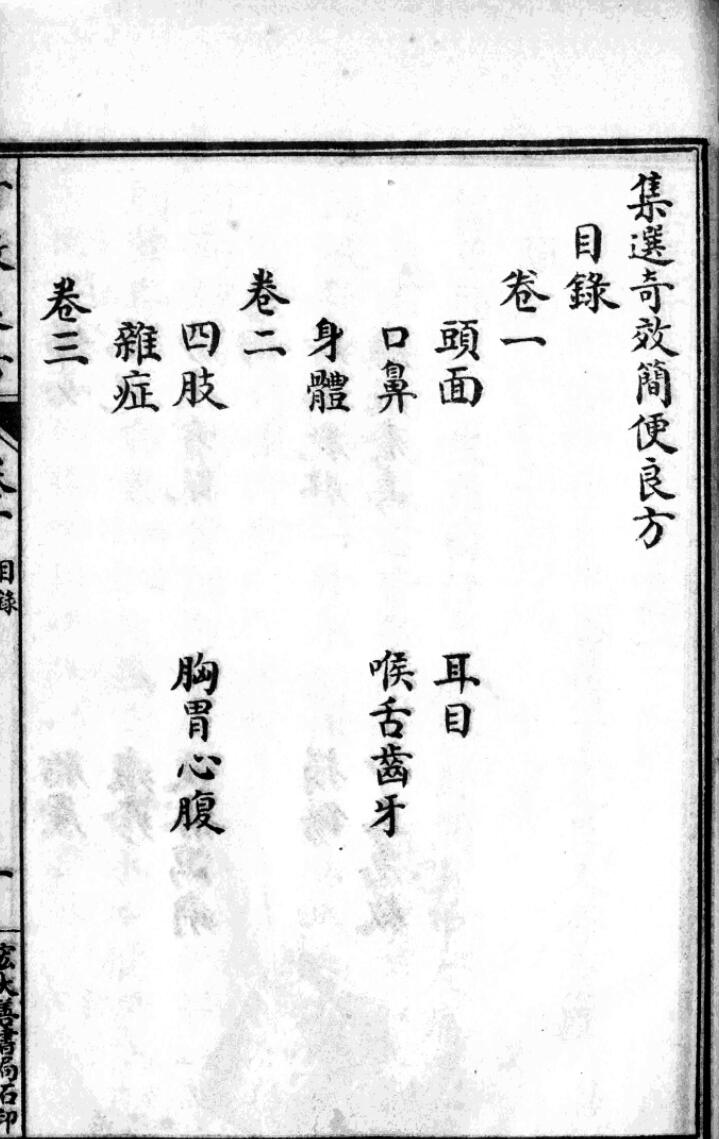 集選奇效簡便良方
目錄
卷一
頭面 耳目
口鼻 喉舌齒牙
身體
卷二
四肢 胸胃心腹
雜症
卷三
目錄
一
宏大善書局石印